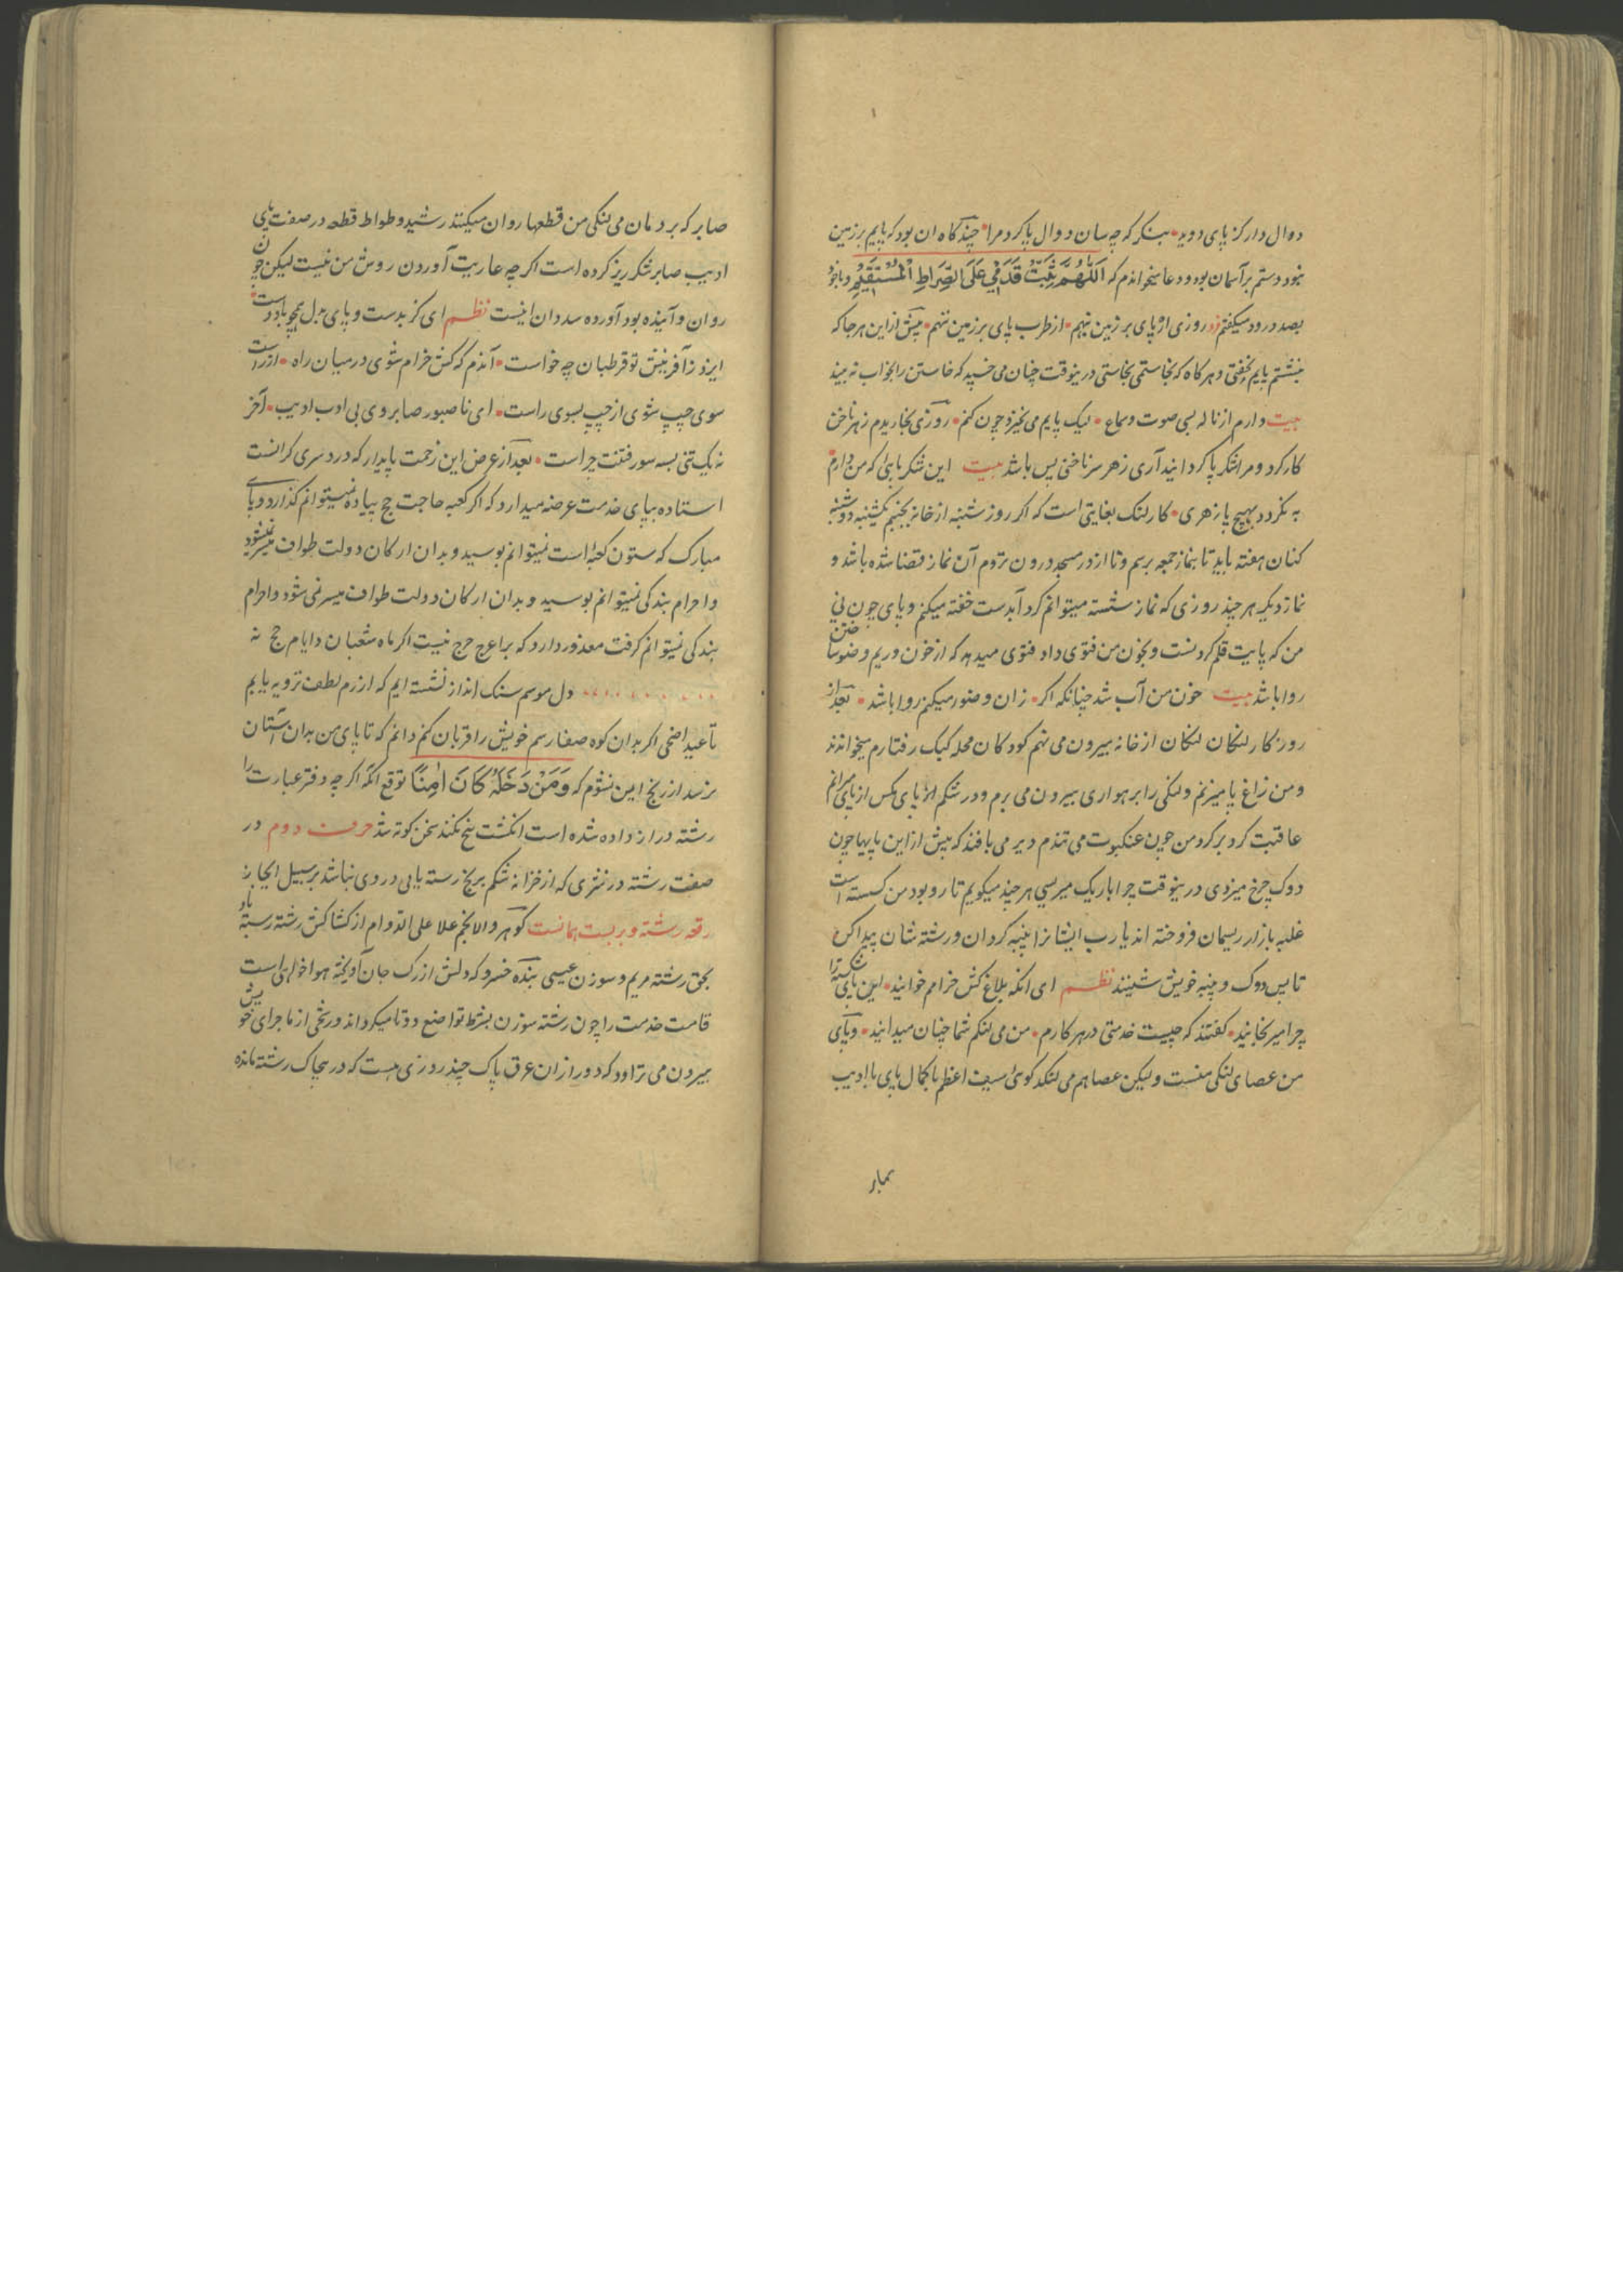 دوال دار کز پای دوید بنکر که چه سان دوال پا کرد مرا چند کاه ان بود که پایم بر زمین
نبود و دستم بر آسمان بود و دعا میخواندم که اَللّٰهُمَّ ثَبِّتْ قَدَمِی عَلَی الصِّرَاطِ الْمُسْتَقِیْمِ و با خود
بصد درود میکفتم روزی اکر پای بر زمین نهم از طرب پای بر زمین ننهم پیش از این هر جا که
نشستم پایم بخفتی و هر کاه که بخاستمی بخاستی درینوقت چنان می خسپد که خاستن را بخواب نه بیند
بیت دارم از ناله بسی صوت و سماع لیک پایم می نخیزد چون کنم روزی بخاریدم زهر ناخن
کار کرد و مرا شکر پا کردانید آری زهر سر ناخنی بس باشد بیت این شکر پائی که من دارم
به نکردد بهیچ پا زهری کار لنک بغایتی است که اکر روز شنبه از خانه بجنبم یکشنبه دوشنبه
کنان هفته باید تا بنماز جمعه برسم و تا از در مسجد درون روم آن نماز قضا شده باشد و
نماز دیکر هر چند روزی که نماز نشسته میتوانم کرد آبدست خفته میکنم و پای چون نی
من که پایت قلم کردنست و بخون من فتوی داد فتوی میدهد که از خون و ریم وضو ساختن
روا باشد بیت خون من آب شد چنانکه اکر زان وضو میکنم روا باشد بعد از
روزکار لنکان لنکان از خانه بیرون می نهم کودکان محله کبک رفتارم میخوانند
و من زاغ پا میزنم و لنکی را برهواری بیرون می برم و در شکم پای مکس از پای میرانم
عاقبت کرد بر کرد من چون عنکبوت می تنند و دیر می بافند که پیش از این پایها چون
دوک چرخ میزدی درینوقت چرا باریک میریسی هر چند میکویم تار و پود من کسسته است
غلبه بازار ریسمان فروخته اند یارب ایشانرا پنبه کردان و رشته شان پیدا کن
تا پس دوک و پنبه خویش نشینند نظم ای انکه بلاغ کش خرامم خوانید این پای شکسته را
چرا میرنجانید کفتند که چیست خدمتی در هر کارم من می لنکم شما چنان میدانید و پای
من عصای لنکی منست و لیکن عصا هم می لنکد کوئی سیف اعظم با کمال پای با ادیب
صابر
صابر که بر دمان می لنکی من قطعها روان میکنند رشید وطواط قطعه در صفت پای
ادیب صابر شکر ریز کرده است اکر چه عاریت آوردن روش من نیست لیکن چون
روان و آینده بود آورده شد و ان اینست نظم ای کز بدست و پای همچو باد و است
ایزد ز آفرینش تو قرطبان چه خواست آندم که کش خرام شوی در میان راه از راست
سوی چپ شوی از چپ بسوی راست ای ناصبور صابر وی بی ادب ادیب آخر
نه یک تنی بسه سو رفتنت چراست بعد از عرض این زحمت پایدار که درد سری کرانست
استاده بپای خدمت عرضه میدارد که اکر کعبه حاجت حج پیاده نمیتوانم کذارد و پای
مبارک که ستون کعبه است نمیتوانم بوسید و بدان ارکان دولت طواف میسر نمیشود
و احرام بندکی نمیتوانم بوسید و بدان ارکان دولت طواف میسر نمی شود و احرام
بندکی نمیتوانم کرفت معذور دارد که بر اعرج حرج نیست اکر ماه شعبان و ایام حج نه
دل موسم سنک انداز نشسته ایم که از زم لطف ترویه یابیم
تا عید اضحی اکر بدان کوه صفا رسم خویش را قربان کنم دانم که تا پای من بدان آستان
نرسد از رنج ایمن نشوم که وَمَنْ دَخَلَهُ کَانَ اٰمِنًا توقع انکه اکر چه دفتر عبارت را
رشته دراز داده شده است انکشت پیچ نکند سخن کوته شد حرف دوم در
صفت رشته در نثری که از خزانه شکم بریخ رسته یابی دردی نباشد بر سبیل ایجاز
رقعه رشته و ربیست همانست کوهر والا نجم علا علی الدوام از کشاکش رشته رسته باد
بحق رشته مریم و سوزن عیسی بنده خسرو که دلش از رک جان آویخته هوا خواهی است
قامت خدمت را چون رشته سوزن بشرط تواضع دوتا میکرداند و رنجی از ماجرای خویش
بیرون می تراود که دور از ان عرق پاک چند روزی هست که در پیچاک رشته مانده